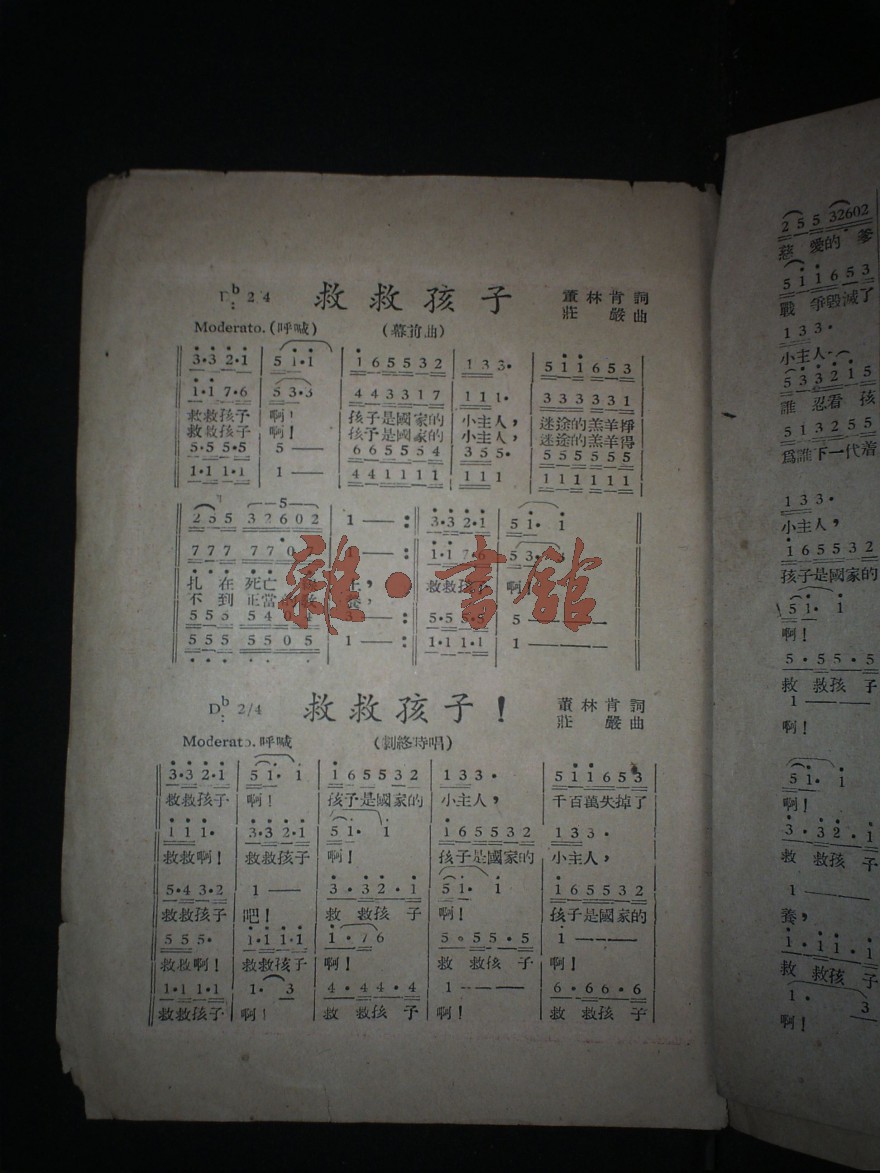 Db: 2/4 救救孩子 董林肯詞
莊嚴曲
Moderato.(呼喊) (幕前曲)
3·3 2·1 5 1·1 1 6 5 5 3 2 1 3 3· 5 1 1 6 5 3
1·1 7·6 5 3·3 4 4 3 3 1 7 1 1 1· 3 3 3 3 3 1
救救孩子 啊! 孩子是國家的 小主人, 迷途的羔羊掙
救救孩子 啊! 孩子是國家的 小主人, 迷途的羔羊得
5·5 5·5 5 — 6 6 5 5 5 4 3 5 5· 5 5 5 5 5 5
1·1 1·1 1 — 4 4 1 1 1 1 1 1 1 1 1 1 1 1 1
5
2 5 5 3 2 6 0 2 1 — : 3·3 2·1 5 1· 1
7 7 7 7 7 0 : 1·1 7·6 5 3·3
扎在死亡 救救孩子 啊!
不到正當
5 5 5 5 4 : 5·5 5·5 5 — — —
5 5 5 5 5 0 5 1 — : 1·1 1·1 1 — — —
Db: 2/4 救救孩子! 董林肯詞
莊嚴曲
Moderato.呼喊 (劇終時唱)
3·3 2·1 5 1· 1 1 6 5 5 3 2 1 3 3· 5 1 1 6 5 3
救救孩子 啊! 孩子是國家的 小主人, 千百萬失掉了
1 1 1· 3·3 2·1 5 1· 1 1 6 5 5 3 2 1 3 3·
救救啊! 救救孩子 啊! 孩子是國家的 小主人,
5·4 3·2 1 — 3·3 2·1 5 1· 1 1 6 5 5 3 2
救救孩子 吧! 救救孩子 啊! 孩子是國家的
5 5 5· 1·1 1·1 1·7 6 5·5 5·5 1 — — —
救救啊! 救救孩子 啊! 救救孩子 啊!
1·1 1·1 1· 3 4·4 4·4 1 — — — 6·6 6·6
救救孩子 啊! 救救孩子 啊! 救救孩子
2 5 5 3 2 6 0 2
慈愛的爹
5 1 1 6 5 3
戰爭毀滅了
1 3 3·
小主人
5 3 3 2 1 5
誰忍看孩
5 1 3 2 5 5
爲誰下一代着
1 3 3·
小主人,
1 6 5 5 3 2
孩子是國家的
5 1· 1
啊!
5·5 5·5
救救孩子
1 — — —
啊!
5 1· 1
啊!
3·3 2·1
救救孩子
1 — — —
養,
1·1 1·1
救救孩子
1· 3
啊!
雜·書館